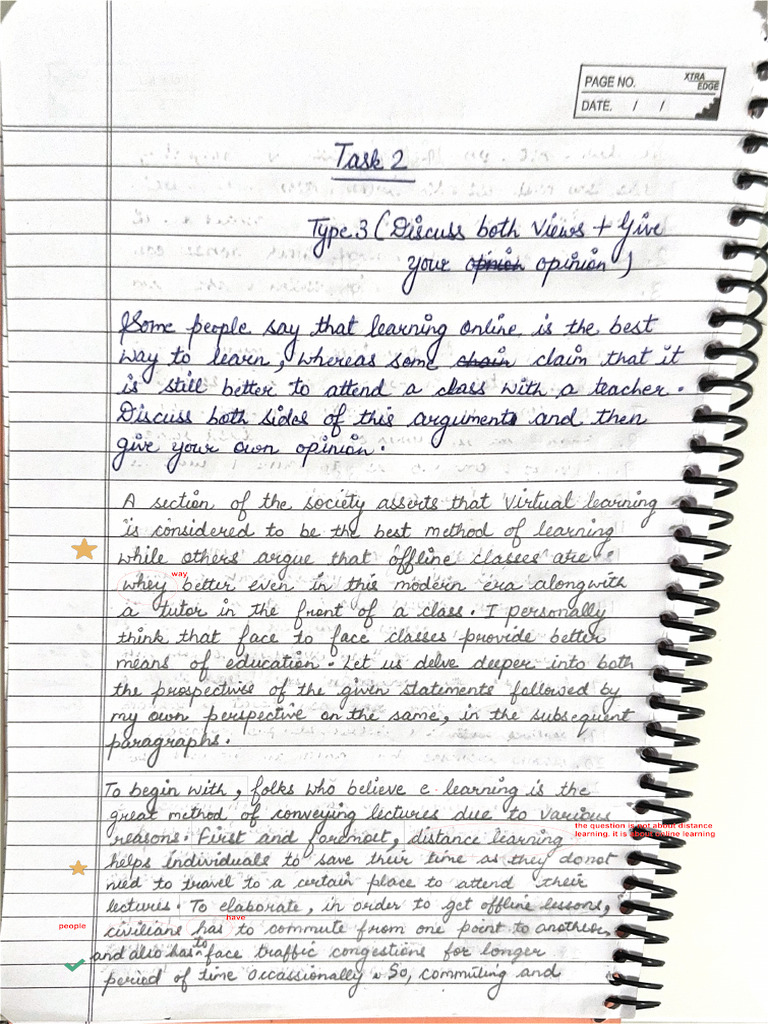 PAGE NO.
XTRA EDGE
DATE. / /
Task 2
Type 3 (Discuss both Views + Give
your opinion opinion)
(Some people say that learning online is the best
way to learn, whereas some claim that it
is still better to attend a class with a teacher.
Discuss both sides of this argument and then
give your own opinion.
A section of the society asserts that virtual learning
is considered to be the best method of learning
while others argue that offline classes are
way
whey better even in this modern era alongwith
a tutor in the front of a class. I personally
think that face to face classes provide better
means of education. Let us delve deeper into both
the prospectives of the given statements followed by
my own perspective on the same, in the subsequent
paragraphs.
To begin with, folks who believe e learning is the
great method of conveying lectures due to various
the question is not about distance
learning. it is about online learning
reasons. First and foremost, distance learning
helps individuals to save their time as they donot
need to travel to a certain place to attend their
lectures. To elaborate, in order to get offline lessons,
have
people
civilians has to commute from one point to another,
and also has to face traffic congestions for longer
period of time occassionally. So, commuting and